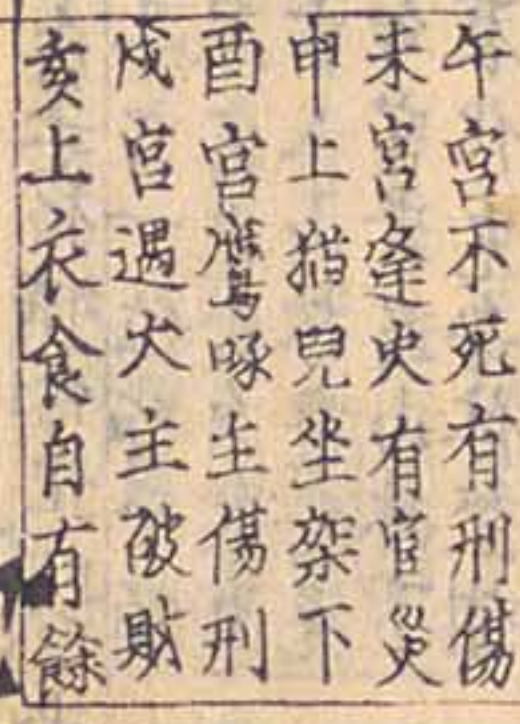 午宮不死有刑傷
未宮逢火有官災
申上猫兒坐架下
酉宮鷹啄主傷刑
戌宮遇犬主破財
亥上衣食自有餘